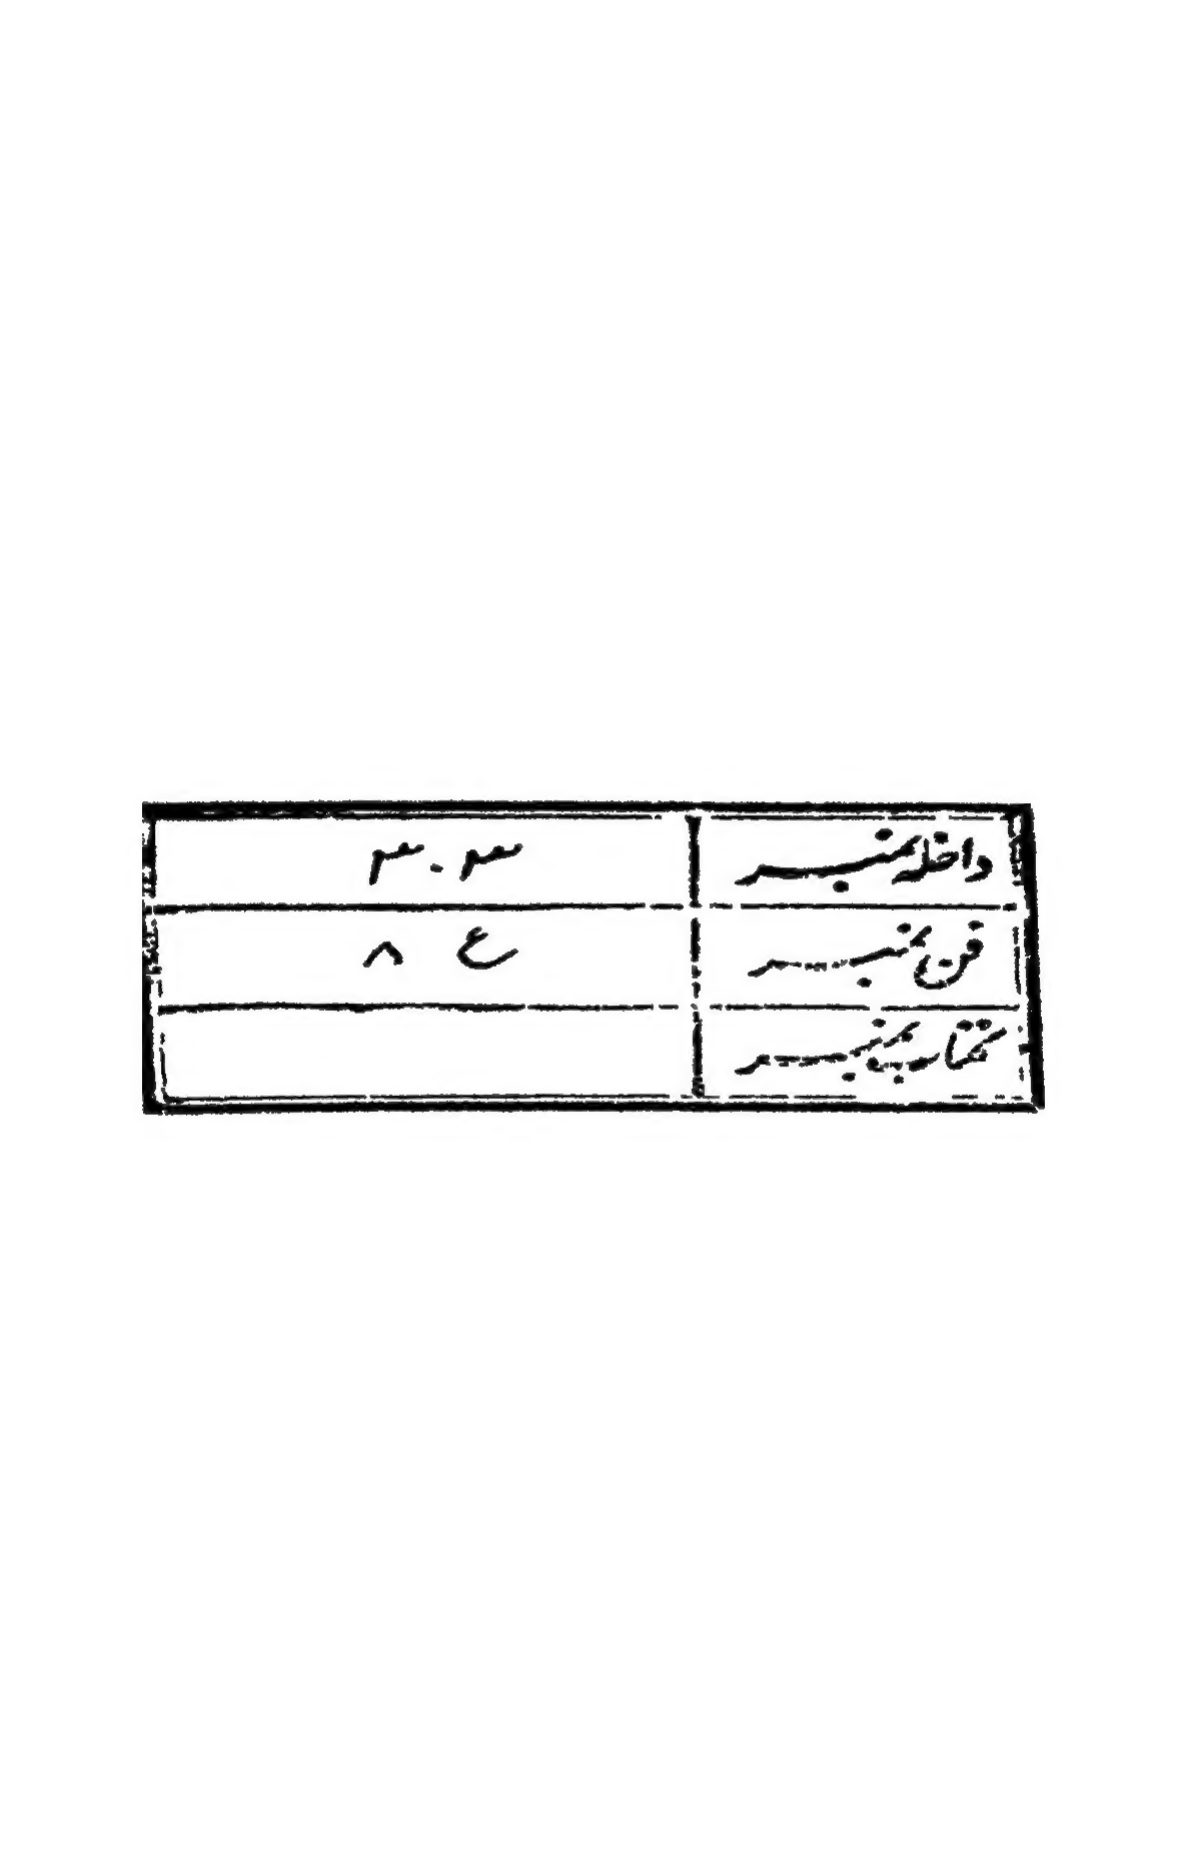 داخلہ نمبر ۳۰۳
فن نمبر ع ۸
کتاب نمبر